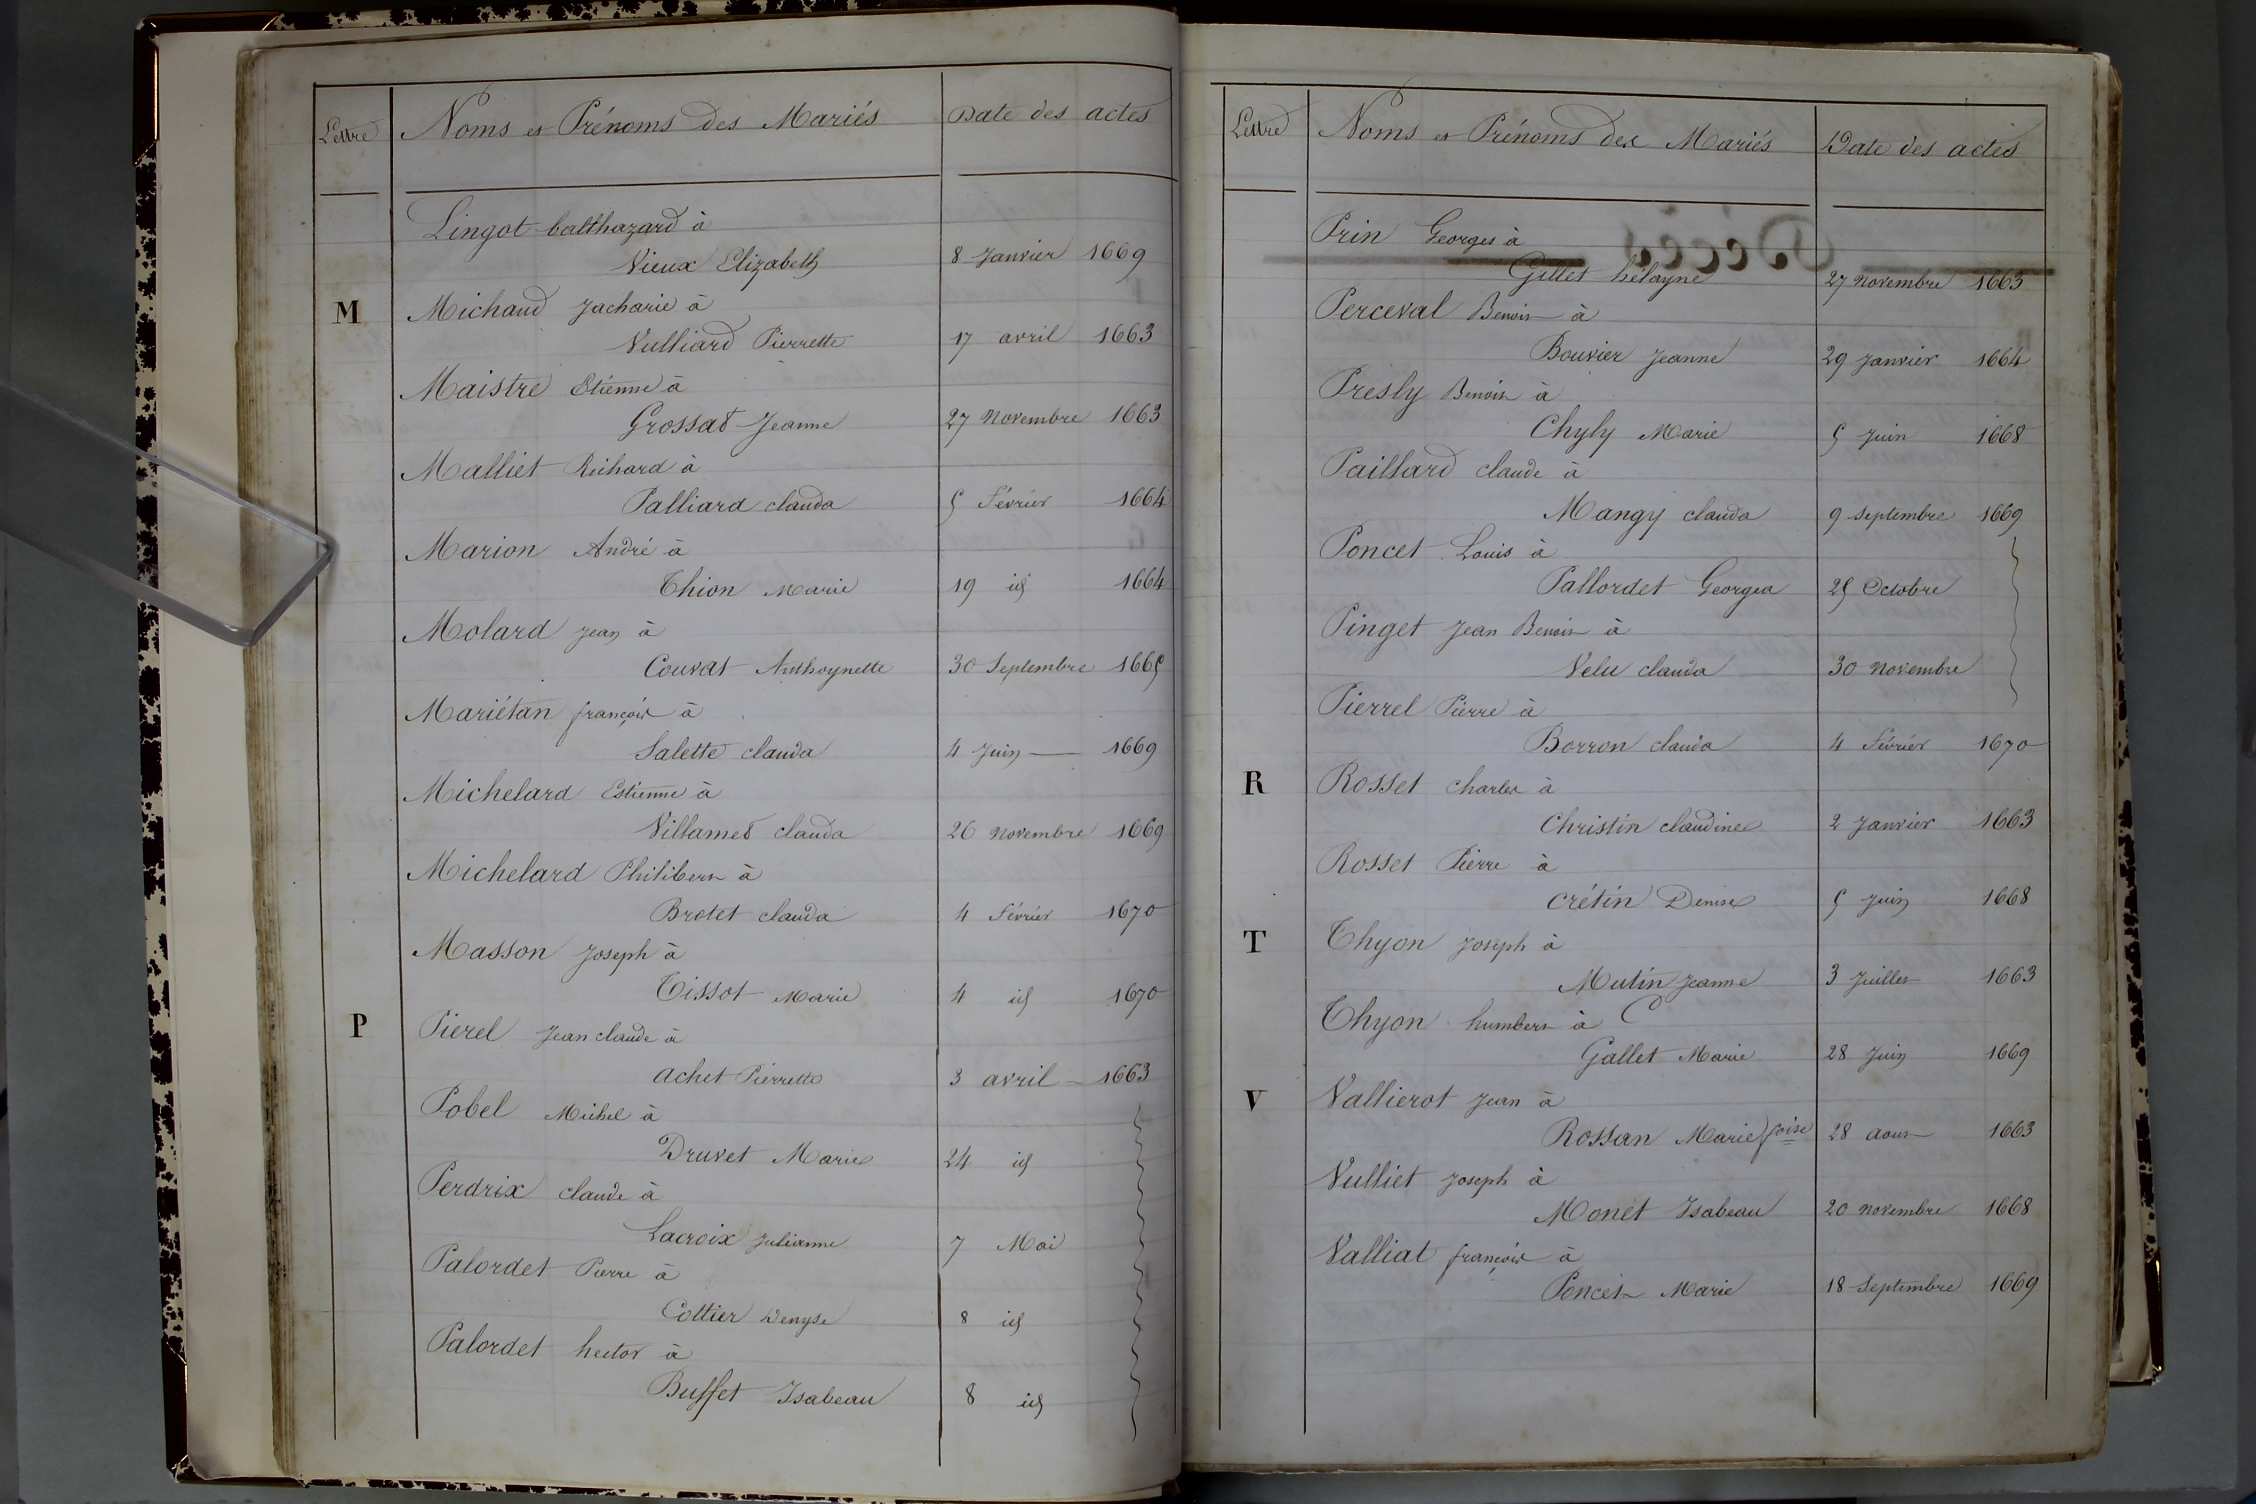 Lettre Noms et Prénoms des Mariés Date des actes
Lingot balthazard à
Vieux Elizabeth 8 Janvier 1669
M Michaud Jacharie à
Vulliard Pierrette 17 avril 1663
Maistre Etienne à
Grossat Jeanne 27 Novembre 1663
Malliet Richard à
Palliard clauda 5 Février 1664
Marion André à
Thion Marie 19 id 1664
Molard Jean à
Couvat Anthoynette 30 Septembre 1665
Mariétan françois à
Salette clauda 4 Juin — 1669
Michelard Estienne à
Villamet clauda 26 Novembre 1669
Michelard Philibert à
Brotet clauda 4 Février 1670
Masson Joseph à
Tissot Marie 4 id 1670
P Pierel Jean claude à
achet Pierrette 3 avril — 1663
Pobel Michel à
Druvet Marie 24 id
Perdrix claude à
Lacroix Julianne 7 Mai
Palordet Pierre à
Cottier Denyse 8 id
Palordet hector à
Buffet Isabeau 8 id
Lettre Noms et Prénoms des Mariés Date des actes
Prin Georges à
Décès
Gillet hélayne 27 Novembre 1663
Perceval Benoit à
Bouvier Jeanne 29 Janvier 1664
Presly Benoit à
Chyly Marie 5 Juin 1668
Paillard claude à
Mangy clauda 9 Septembre 1669
Poncet Louis à
Pallordet Georgea 25 Octobre
Pinget Jean Benoit à
Velu clauda 30 Novembre
Pierrel Pierre à
Borron clauda 4 Février 1670
R Rosset Charles à
Christin claudine 2 Janvier 1663
Rosset Pierre à
crétin Denise 5 Juin 1668
T Thyon Joseph à
Mutin Jeanne 3 Juillet 1663
Thyon humbert à
Gallet Marie 28 Juin 1669
V Vallierot Jean à
Rossan Marie foise 28 aout 1663
Vulliet Joseph à
Monet Isabeau 20 Novembre 1668
Valliat françois à
Poncet Marie 18 Septembre 1669